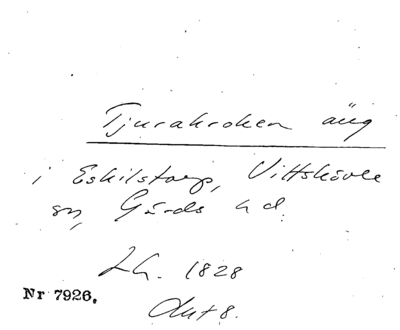 Tjurakroken äng
i Eskilstorp, Vittskövle
sn, Gärds hd.
Lh. 1828
Nr 7926.
akt 8.